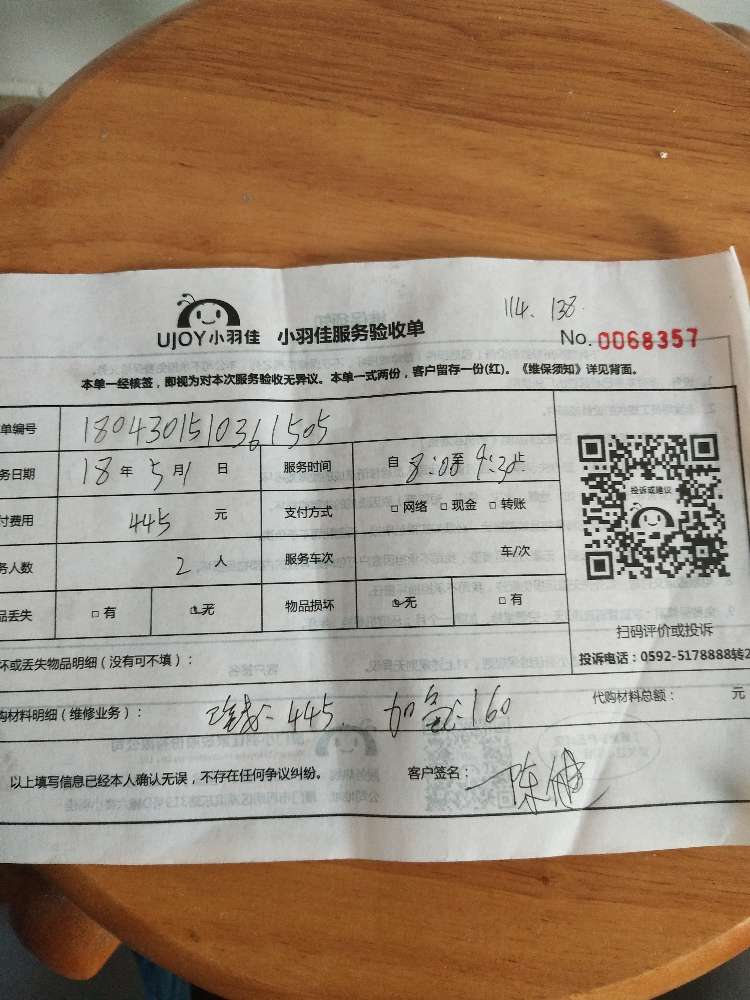 114. 138
UJOY小羽佳 小羽佳服务验收单 No. 0068357
本单一经核签，即视为对本次服务验收无异议。本单一式两份，客户留存一份(红)。《维保须知》详见背面。
单编号 180430151036 1505
务日期 18 年 5 月 1 日 服务时间 自 8:00 至 9:30 止
付费用 445 元 支付方式 □ 网络 □ 现金 □ 转账
投诉或建议
务人数 2 人 服务车次 车/次
品丢失 □ 有 □ 无 物品损坏 □ 无 □ 有
扫码评价或投诉
投诉电话：0592-5178888转2
坏或丢失物品明细（没有可不填）：
购材料明细（维修业务）： -445. 加 160 代购材料总额： 元
以上填写信息已经本人确认无误，不存在任何争议纠纷。 客户签名： 陈